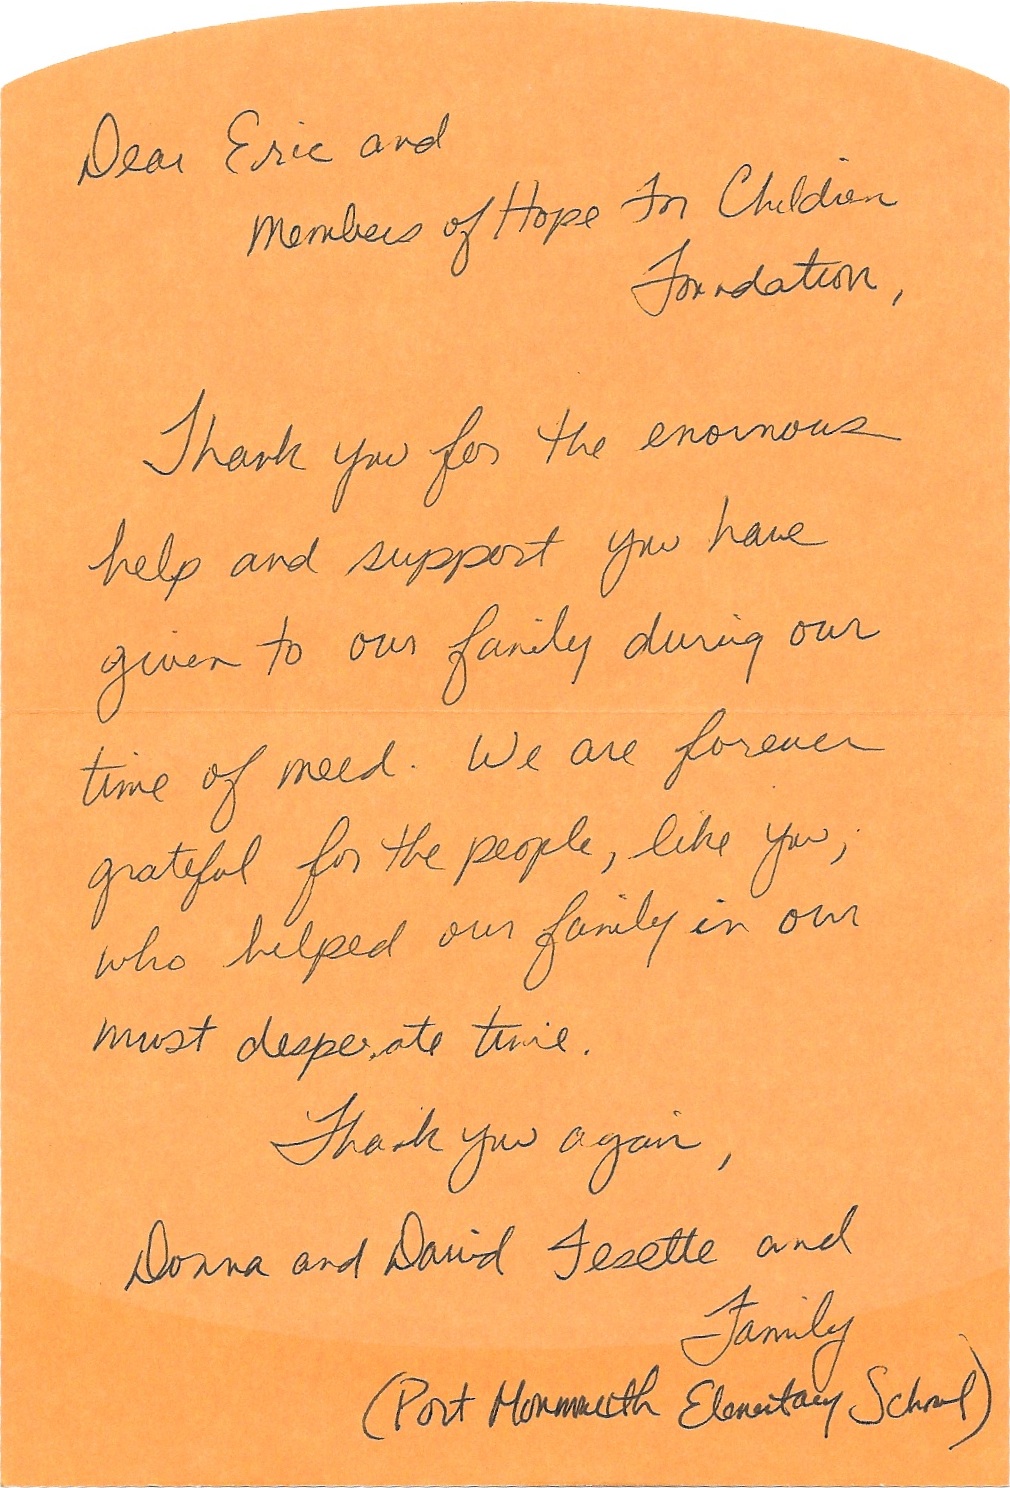 Dear Eric and
Members of Hope For Children
Foundation,
Thank you for the enormous
help and support you have
given to our family during our
time of need. We are forever
grateful for the people, like you,
who helped our family in our
most desperate time.
Thank you again,
Donna and David Fesette and
Family
(Port Monmouth Elementary School)